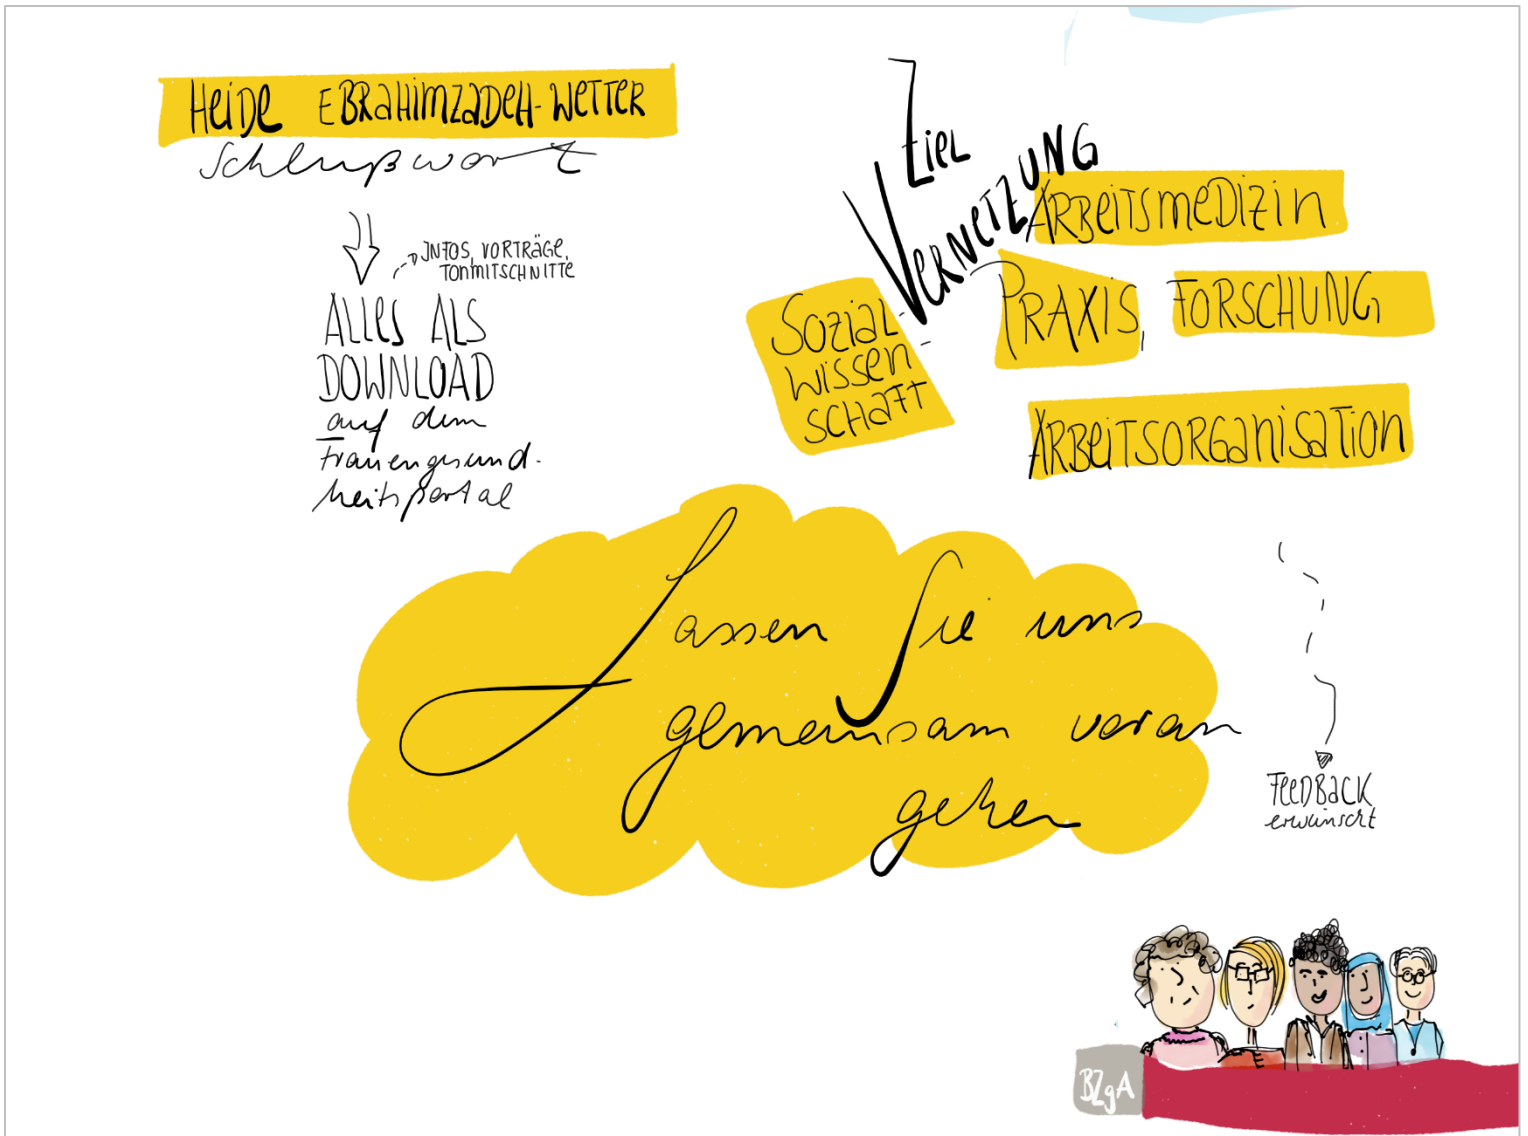 Heide Ebrahimzadeh-Wetter
Schlußwort
Infos, Vorträge,
Tonmitschnitte
Alles als
Download
auf dem
Frauengesund-
heitsportal
Ziel
Vernetzung
Arbeitsmedizin
Sozial-
wissen-
schaft
Praxis, Forschung
Arbeitsorganisation
Lassen Sie uns
gemeinsam voran
gehen
Feedback
erwünscht
BZgA